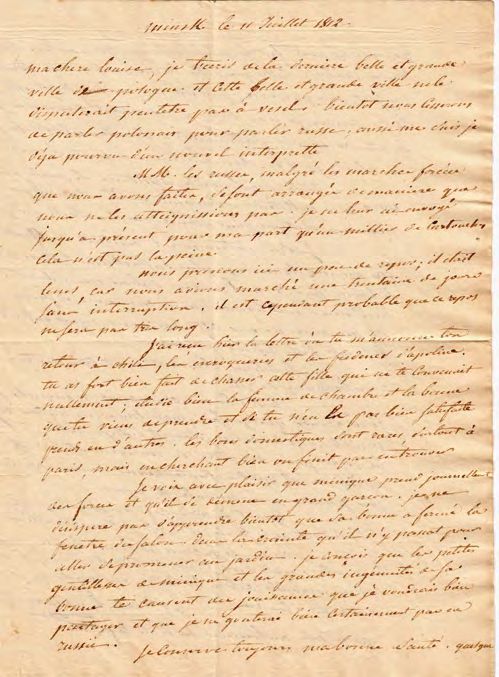 minsk le 11 Juillet 1812.
ma chere louise, je t'ecris de la derniere belle et grande
ville de pologne. et cette belle et grande ville ne le
disputerait peutetre pas à vesel. bientot nous cesserons
de parler polonais pour parler russe, aussi me suis je
deja pourvu d'un nouvel interprette
M.M. les russes, malgré les marches forcées
que nous avons faites, se sont arrangés de maniere que
nous ne les atteignissions pas. je ne leur ai envoyé
jusqu'a présent pour ma part qu'un millier de cartouches
cela n'est pas la peine.
nous prenons ici un peu de repos, il était
tems, car nous avons marché une trentaine de jours
sans interruption. il est cependant probable que ce repos
ne sera pas tres long.
J'ai reçu hier la lettre où tu m'annonce ton
retour à les escroqueries et les
tu as fort bien fait de chasser cette fille qui ne te convenait
nullement; bien la femme de chambre et la bonne
que tu viens de prendre et si tu n'en es pas bien satisfaite
prend en d'autres. les bons domestiques sont rares, surtout à
paris, mais en cherchant bien on finit par en trouver
Je vois avec plaisir que minique prend journellemt
des forces et qu'il se demene en grand garcon. je ne
désespere pas d'apprendre bientot que sa bonne a fermé la
fenetre du salon dans la crainte qu'il n'y passat pour
aller se promener au jardin. je conçois que les petites
gentillesses de minique et les grandes ingénuités de sa
bonne te causent des jouissances que je voudrois bien
partager et que je ne gouterai bien certainement pas en
russie.
Je conserve toujours ma bonne santé. quelque